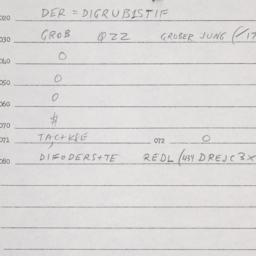 020 DER = DIGRUB1STIF
030 GROB QZZ GRUBER JUNG (/17
040 O
050 O
060 O
070 $
071 TACTKSE 072 O
080 DIFODERS+TE REDL (434 DREJC 3X